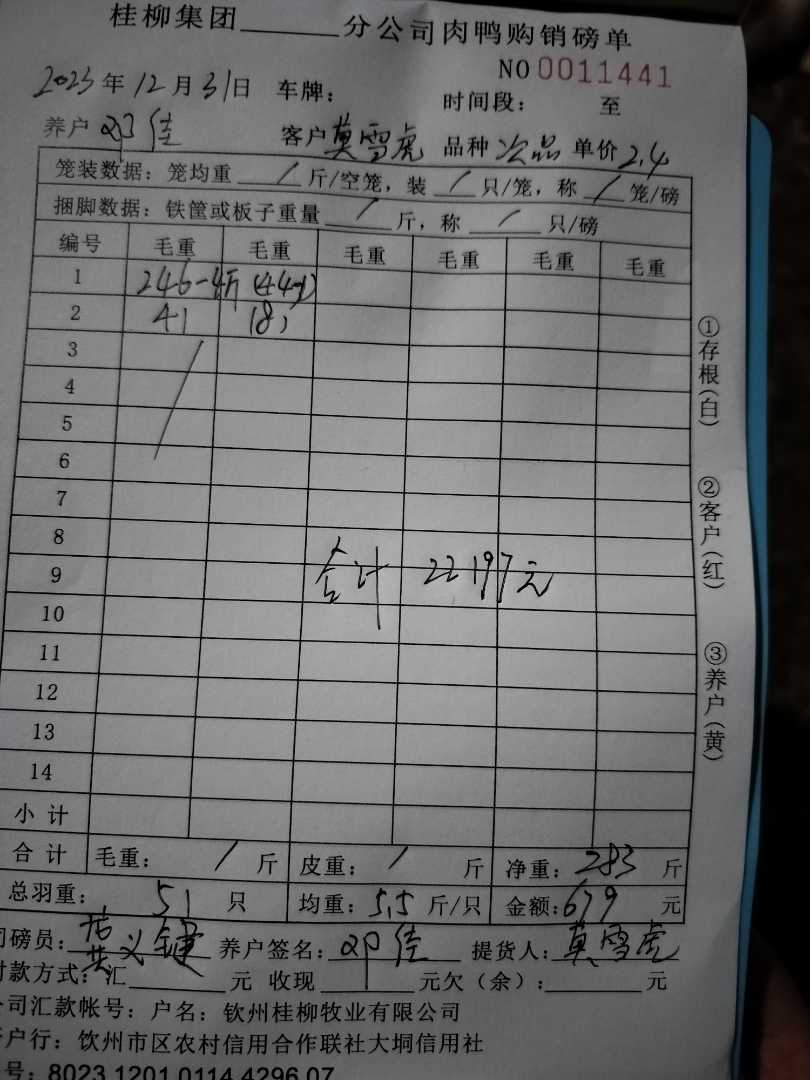 桂柳集团______分公司肉鸭购销磅单
NO 0011441
2023年12月31日 车牌： 时间段： 至
养户 邓佳 客户 莫雪虎 品种 次品 单价 2.4
笼装数据：笼均重 / 斤/空笼，装 / 只/笼，称 / 笼/磅
捆脚数据：铁筐或板子重量 / 斤，称 / 只/磅
编号 毛重 毛重 毛重 毛重 毛重 毛重
1 246-4斤 (44只)
2 41 (8)
3
4
5
6
7
8
9 合计 22197元
10
11
12
13
14
小计
合计 毛重： / 斤 皮重： / 斤 净重：283 斤
总羽重： 51 只 均重：5.5 斤/只 金额：679 元
司磅员： 义键 养户签名： 邓佳 提货人：莫雪虎
付款方式：汇______元 收现______元欠（余）：______元
公司汇款帐号：户名：钦州桂柳牧业有限公司
户行：钦州市区农村信用合作联社大垌信用社
号：8023 1201 0114 4296 07
①存根(白)
②客户(红)
③养户(黄)